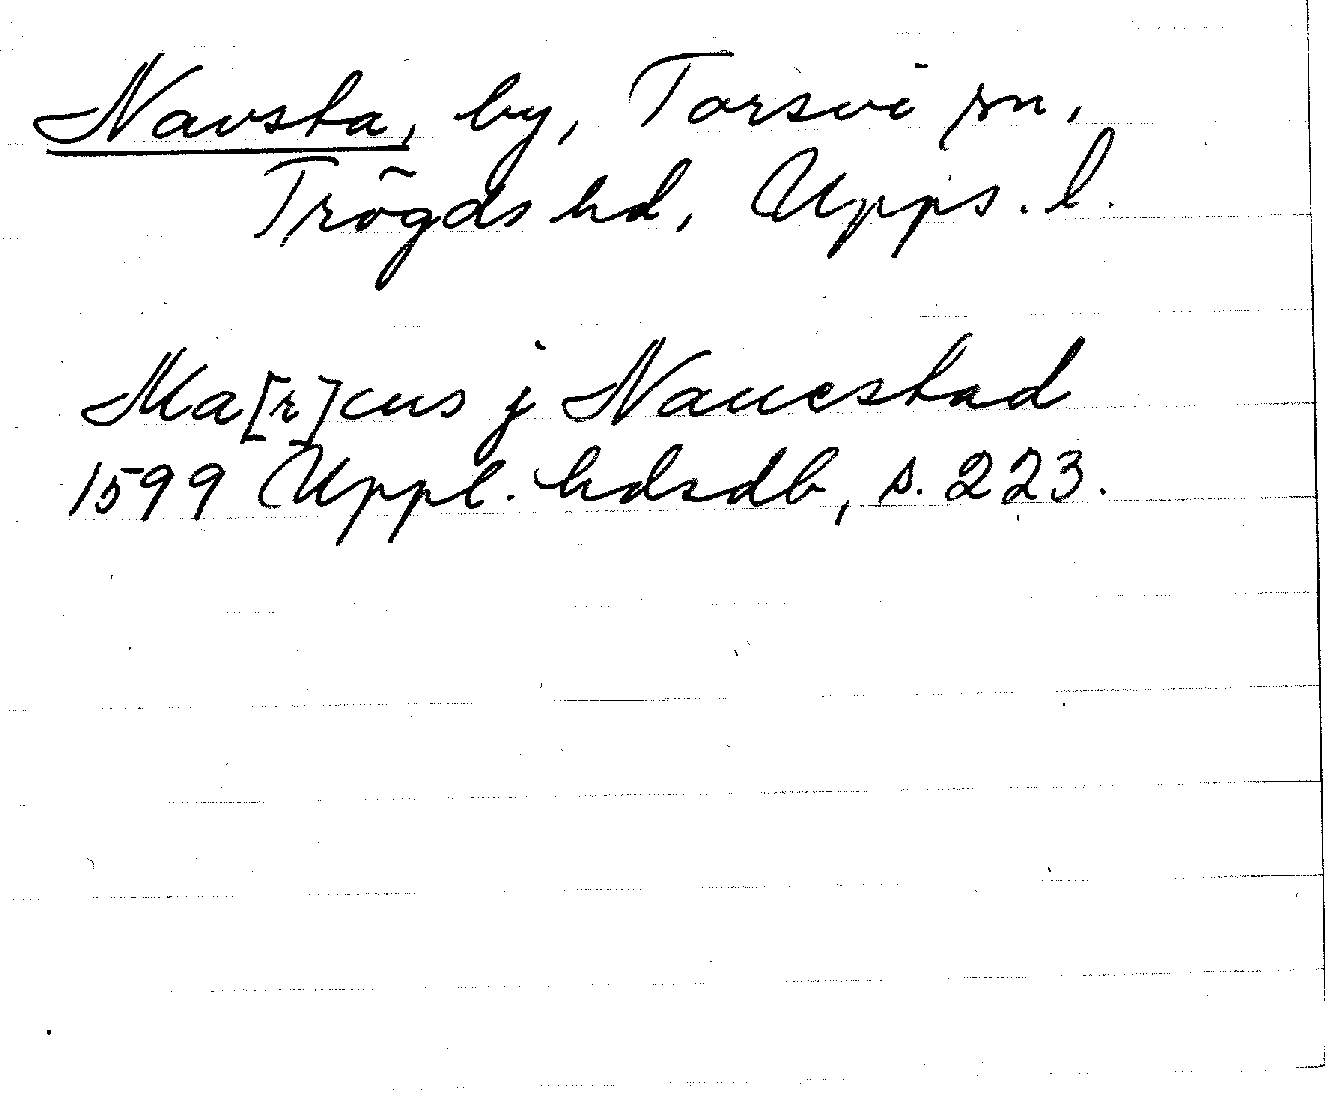 Navsta, by, Torsvi sn,
Trögds hd, Upps. l.
Ma[r]cus j Nauestad
1599 Uppl. hdsdb, s. 223.